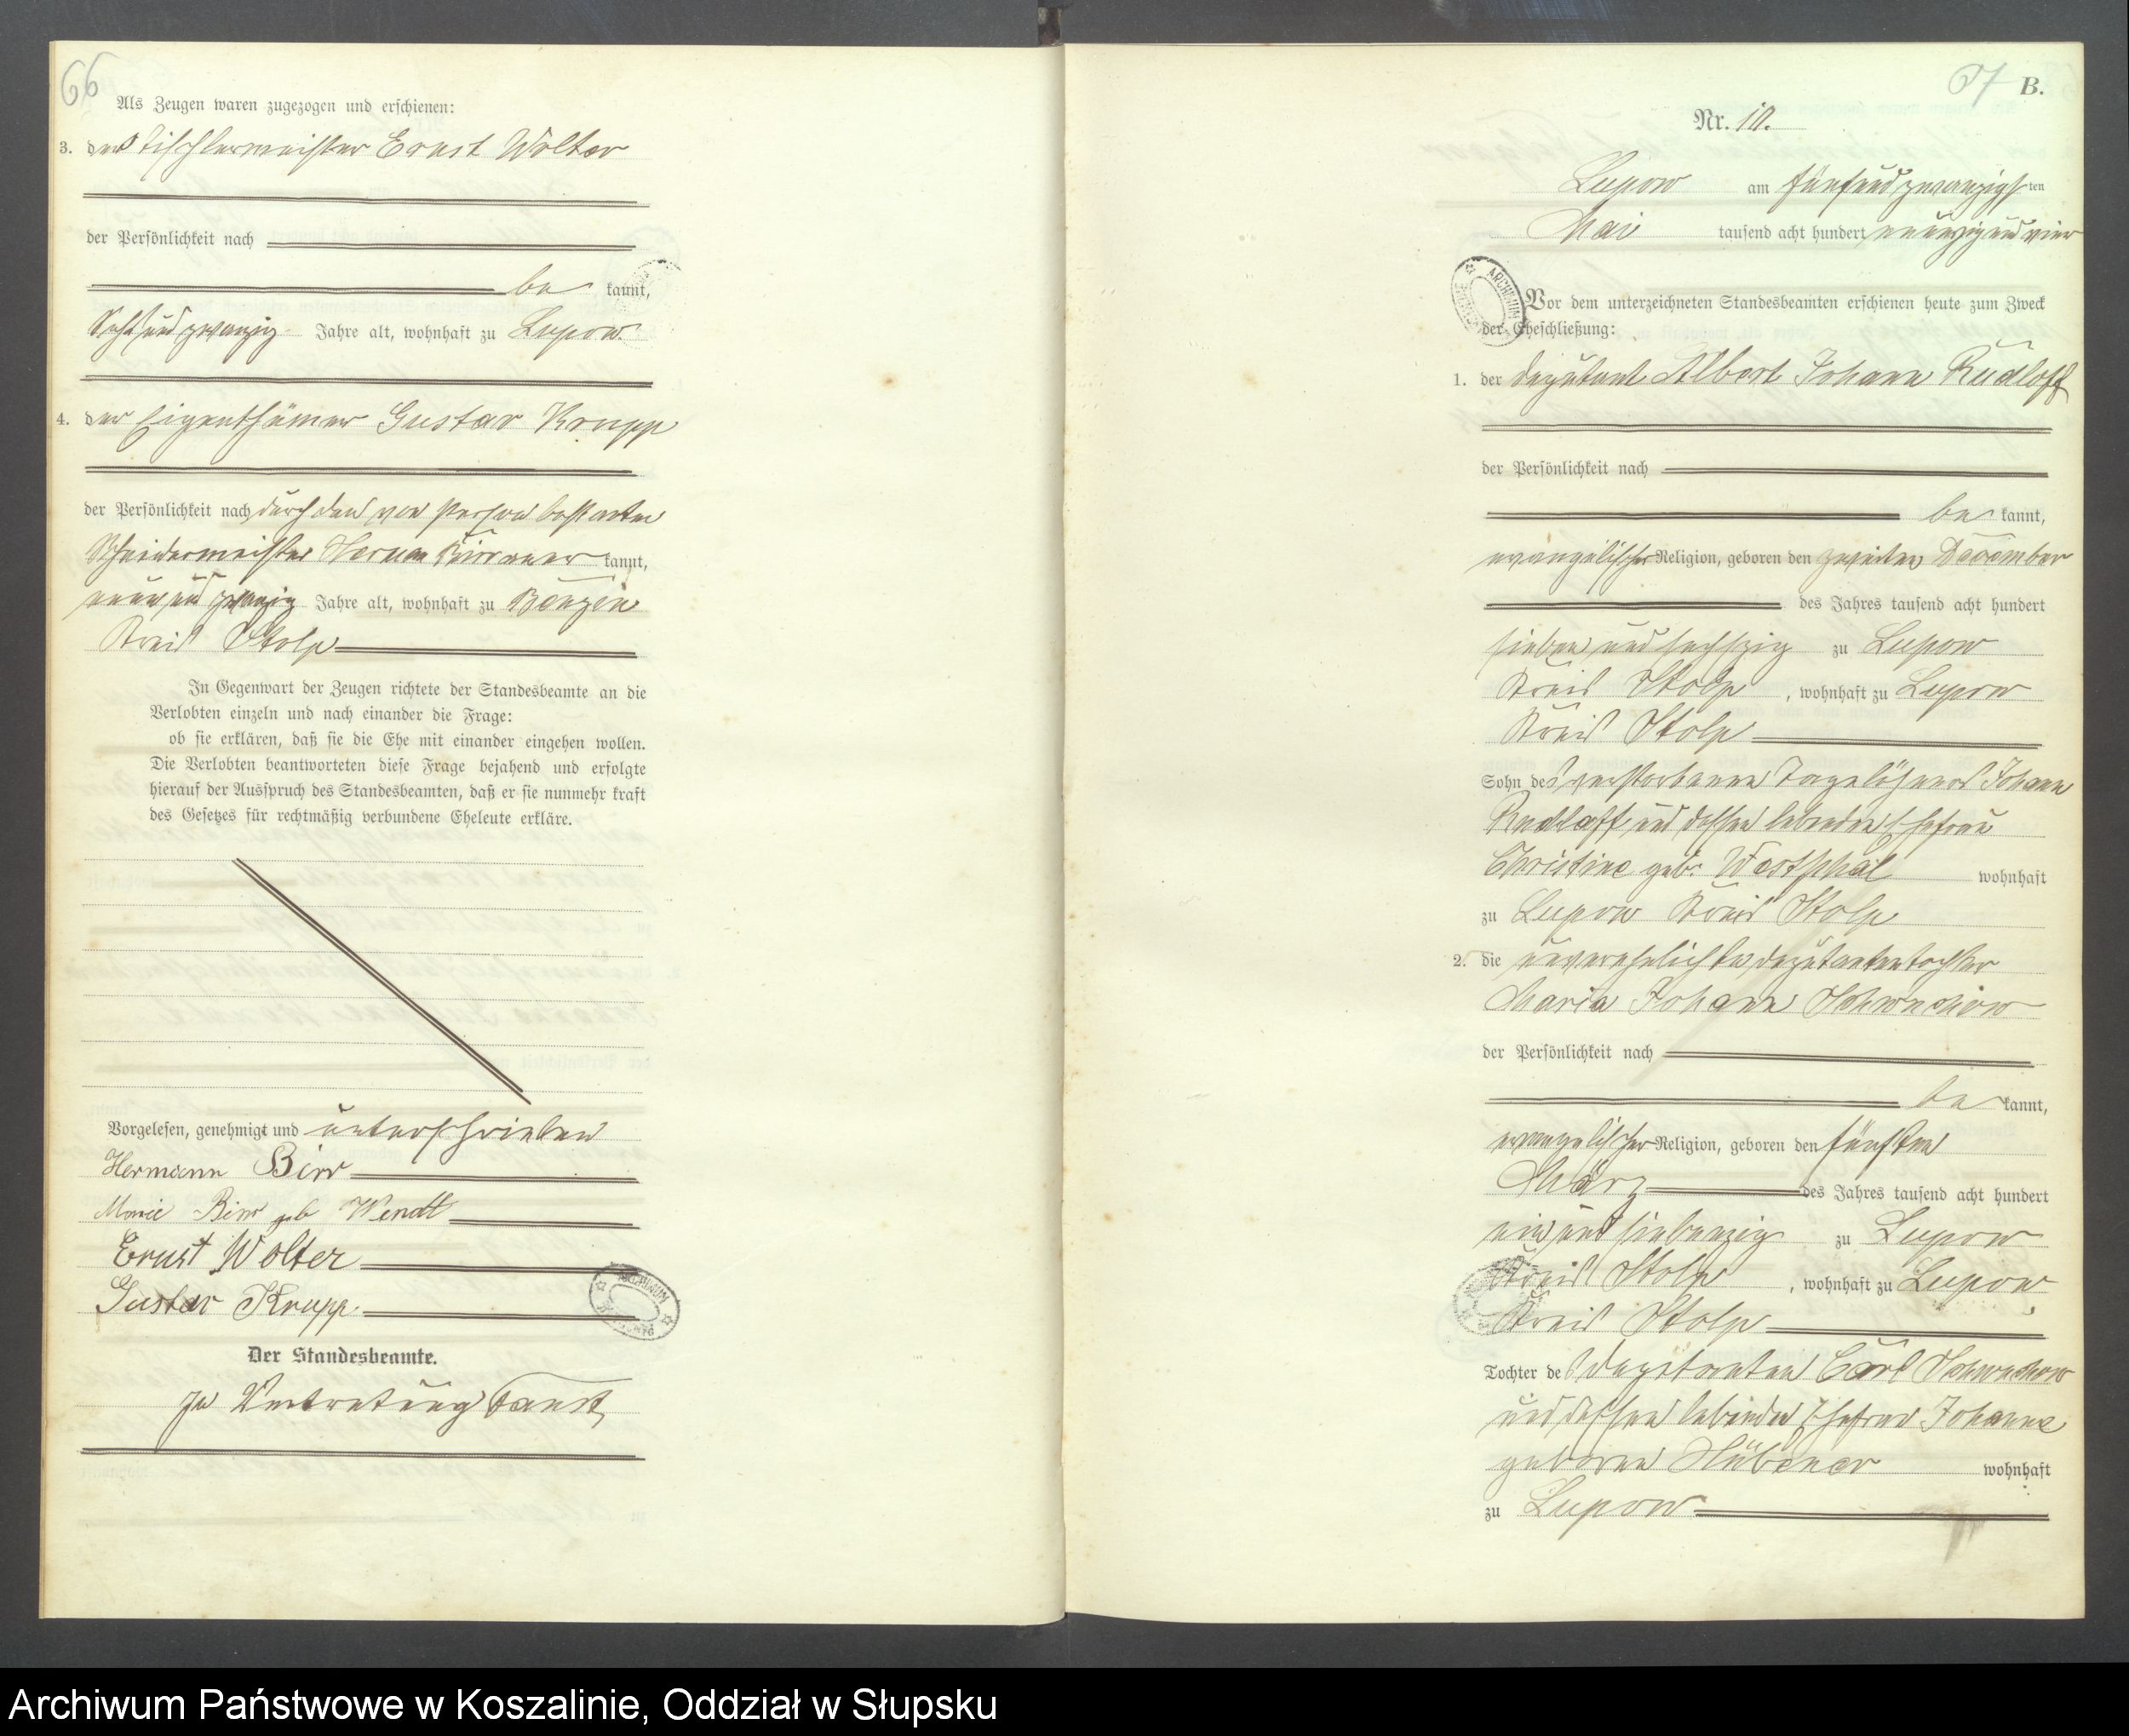 66
Als Zeugen waren zugezogen und erschienen:
3. der Tischlermeister Ernst Wolter
der Persönlichkeit nach
be kannt,
Jahre alt, wohnhaft zu Lupow
4. der Eigenthümer Gustav Krupp
der Persönlichkeit nach durch den von Person bekannten
Schneidermeister Herman kannt,
neun und zwanzig Jahre alt, wohnhaft zu
Kreis Stolp
In Gegenwart der Zeugen richtete der Standesbeamte an die
Verlobten einzeln und nach einander die Frage:
ob sie erklären, daß sie die Ehe mit einander eingehen wollen.
Die Verlobten beantworteten diese Frage bejahend und erfolgte
hierauf der Ausspruch des Standesbeamten, daß er sie nunmehr kraft
des Gesetzes für rechtmäßig verbundene Eheleute erkläre.
Vorgelesen, genehmigt und unterschrieben
Hermann Birr
Marie Birr geb Wendt
Ernst Wolter
Gustav Krupp
Der Standesbeamte.
In Vertretung
ARCHIWUM
67 B.
Nr. 10.
Lupow am fünfundzwanzigs ten
Mai tausend acht hundert neunzig und vier
Vor dem unterzeichneten Standesbeamten erschienen heute zum Zweck
der Eheschließung:
ARCHIWUM
1. der Deputant Albert Johann Rudloff
der Persönlichkeit nach
be kannt,
evangelischer Religion, geboren den zweiten December
des Jahres tausend acht hundert
sieben und sechszig zu Lupow
Kreis Stolp, wohnhaft zu Lupow
Kreis Stolp
Sohn des verstorbenen Tagelöhners Johann
Rudloff und dessen lebenden Ehefrau
Christine geb. Westphal wohnhaft
zu Lupow Kreis Stolp
2. die unverehelichte Deputantentochter
Maria Johann Schwuchow
der Persönlichkeit nach
be kannt,
evangelischer Religion, geboren den fünften
März des Jahres tausend acht hundert
ein und siebenzig zu Lupow
Kreis Stolp, wohnhaft zu Lupow
Kreis Stolp
Tochter des Deputanten Carl Schwuchow
und dessen lebenden Ehefrau Johanne
geborene Hübener wohnhaft
zu Lupow
Archiwum Państwowe w Koszalinie, Oddział w Słupsku